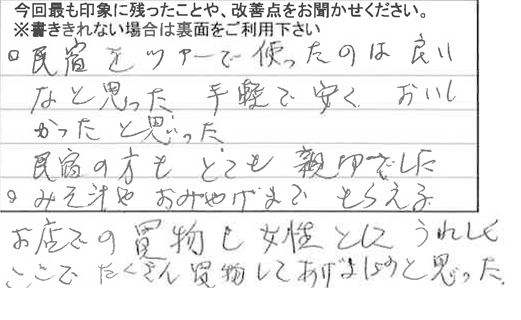 今回最も印象に残ったことや、改善点をお聞かせください。
※書ききれない場合は裏面をご利用下さい
○民宿をツアーで使ったのは良い
なと思った 手軽で安く おいし
かったと思った
民宿の方もとても親切でした
○みそ汁やおみやげまでもらえる
お店での買物も女性としてうれしく
ここでたくさん買物してあげましょうと思った。